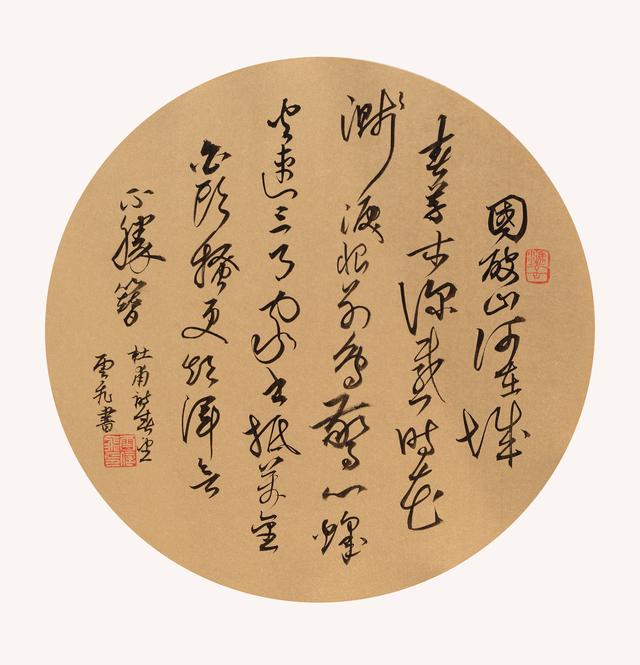 國破山河在城
春草木深感時花
濺淚恨別鳥驚心烽
火連三月家書抵萬金
白頭搔更短渾欲
不勝簪
杜甫詩春望
雲飛書